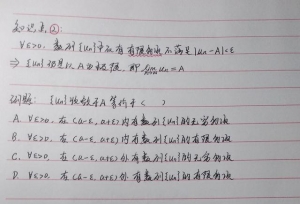 知识点②:
∀ε>0, 数列{un}中仅有有限项不满足|un-A|<ε
⇒ {un}都是以A为极限, 即 lim un=A
例题: {un}收敛于A等价于( )
A. ∀ε>0, 在(a-ε, a+ε)内有数列{un}的无穷项
B. ∀ε>0, 在(a-ε, a+ε)内有数列{un}的有限项
C. ∀ε>0, 在(a-ε, a+ε)外有数列{un}的无穷项
D. ∀ε>0, 在(a-ε, a+ε)外有数列{un}的有限项